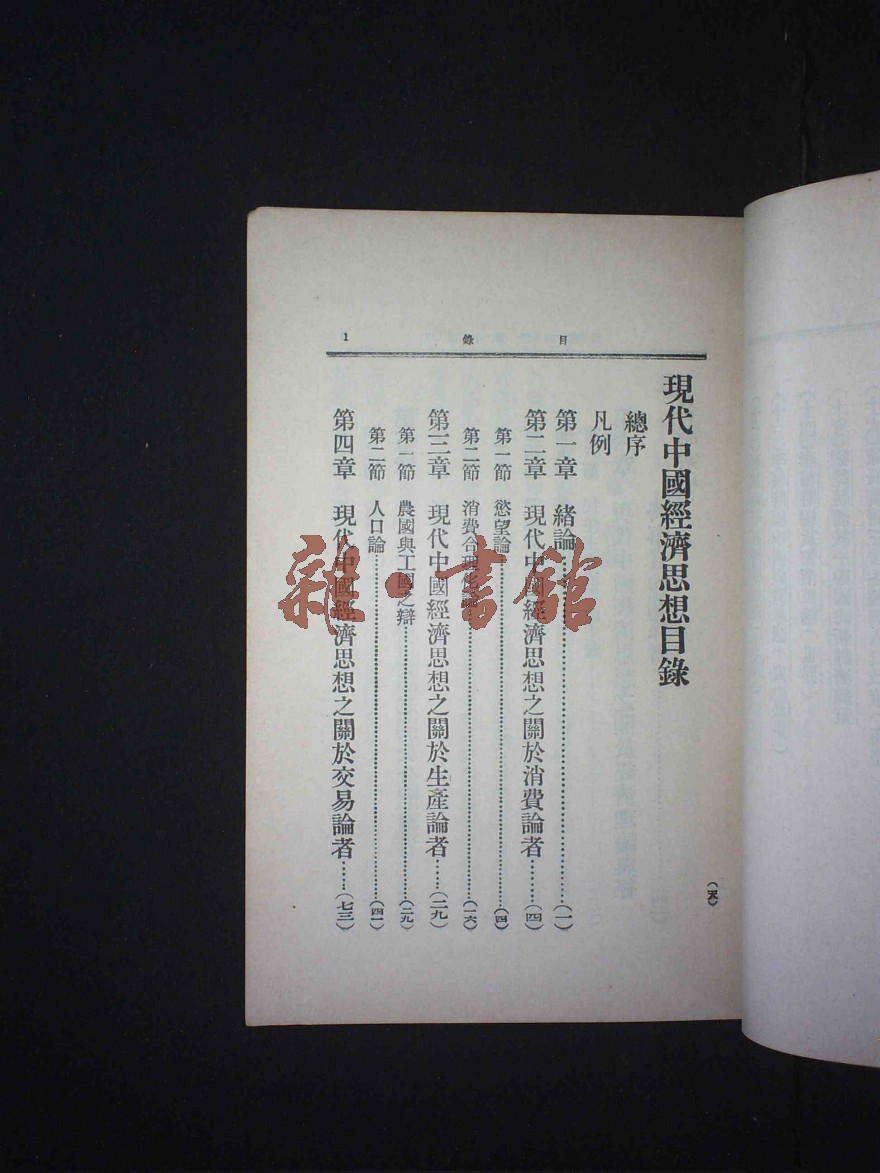 目錄
1
現代中國經濟思想目錄
總序
凡例
第一章 緒論……(一)
第二章 現代中國經濟思想之關於消費論者……(四)
第一節 慾望論……(四)
第二節 消費合理化論……(一六)
第三章 現代中國經濟思想之關於生產論者……(二九)
第一節 農國與工國之辯……(二九)
第二節 人口論……(四一)
第四章 現代中國經濟思想之關於交易論者……(七三)
雜·書館